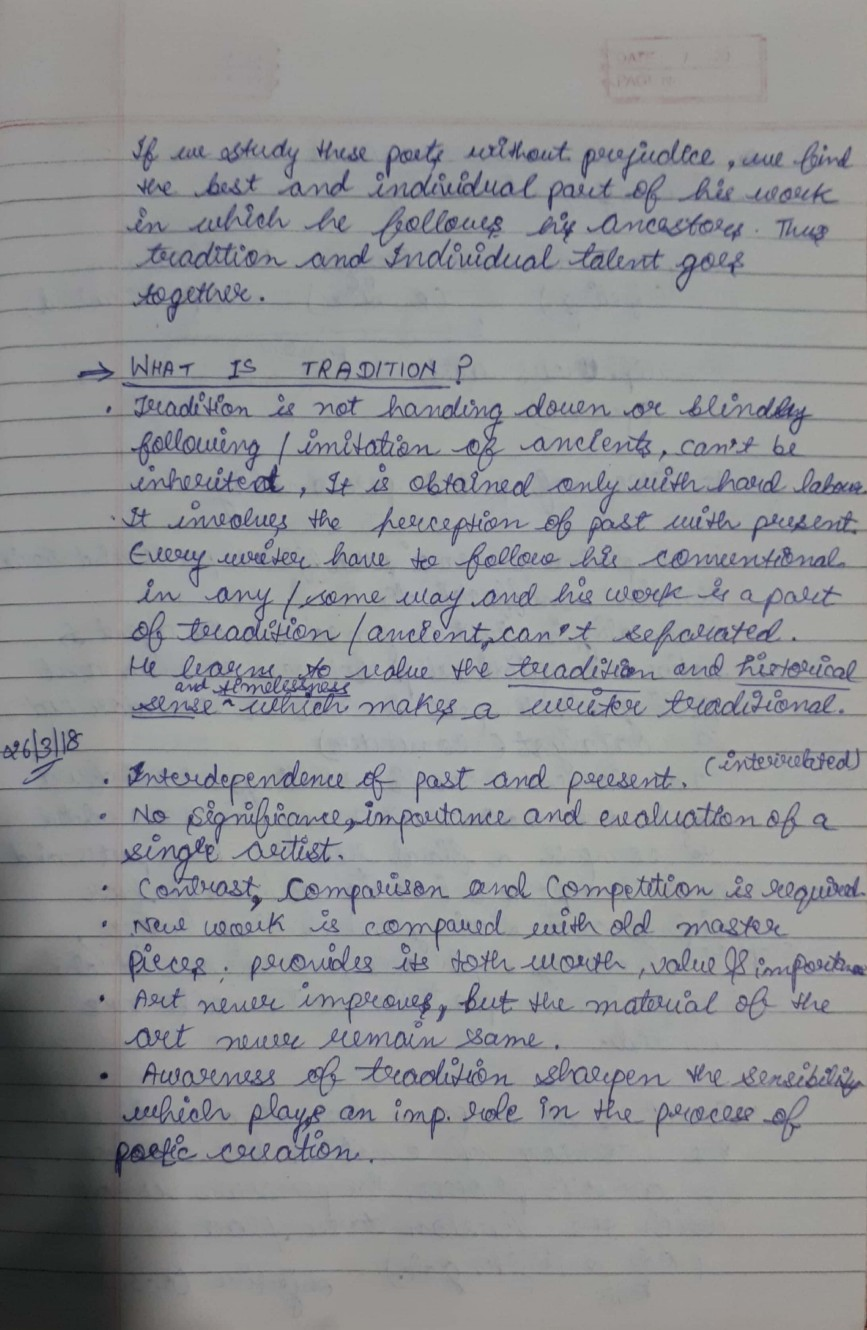 DATE
PAGE
If we study these poets without prejudice, we find
the best and individual part of his work
in which he follows his ancestors. Thus
tradition and Individual talent goes
together.
→ WHAT IS TRADITION?
• Tradition is not handing down or blindly
following / imitation of ancients, can't be
inherited, It is obtained only with hard labour
• It involves the perception of past with present.
Every writer have to follow his conventional
in any / some way and his work is a part
of tradition / ancient, can't separated.
He learns to value the tradition and historical
and timelessness
sense ^ which makes a writer traditional.
26/3/18
• Interdependence of past and present. (interrelated)
• No significance, importance and evaluation of a
single artist.
• Contrast, Comparison and Competition is required.
• New work is compared with old master
pieces; provides its worth, value & importance
• Art never improves, but the material of the
art never remain same.
• Awarness of tradition sharpen the sensibility
which plays an imp. role in the process of
poetic creation.